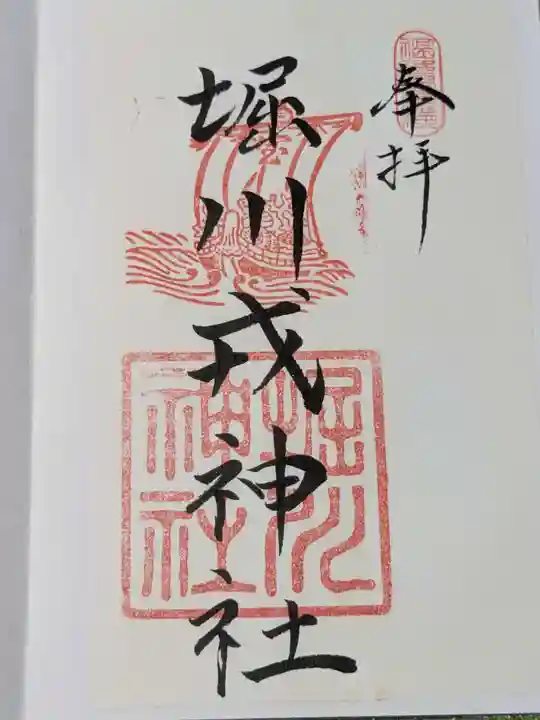 奉拝
堀川戎神社
宝
堀川
神社